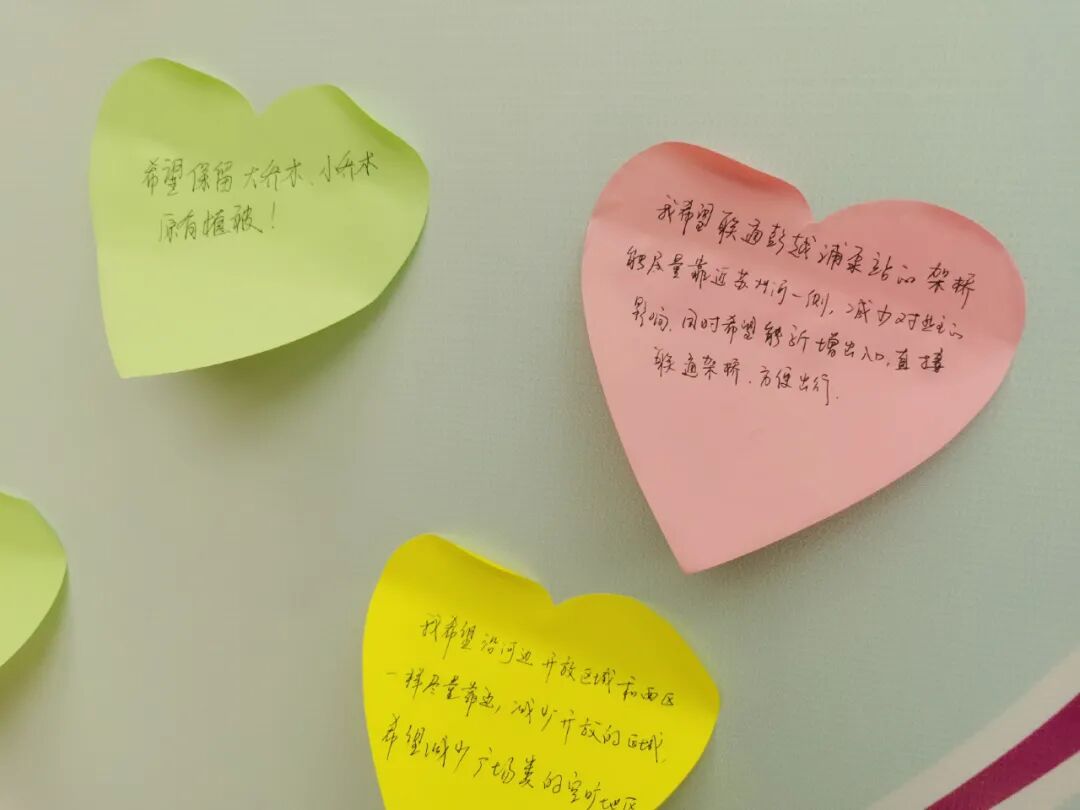 希望保留大乔木、小乔木
原有植被！
我希望联通彭越浦泵站的架桥
能尽量靠近苏州河一侧，减少对业主的
影响.同时希望能新增出入口,直接
联通架桥.方便出行.
我希望沿河边开放区域和西区
一样尽量靠边，减少开放的区域.
希望减少广场类的空旷地区